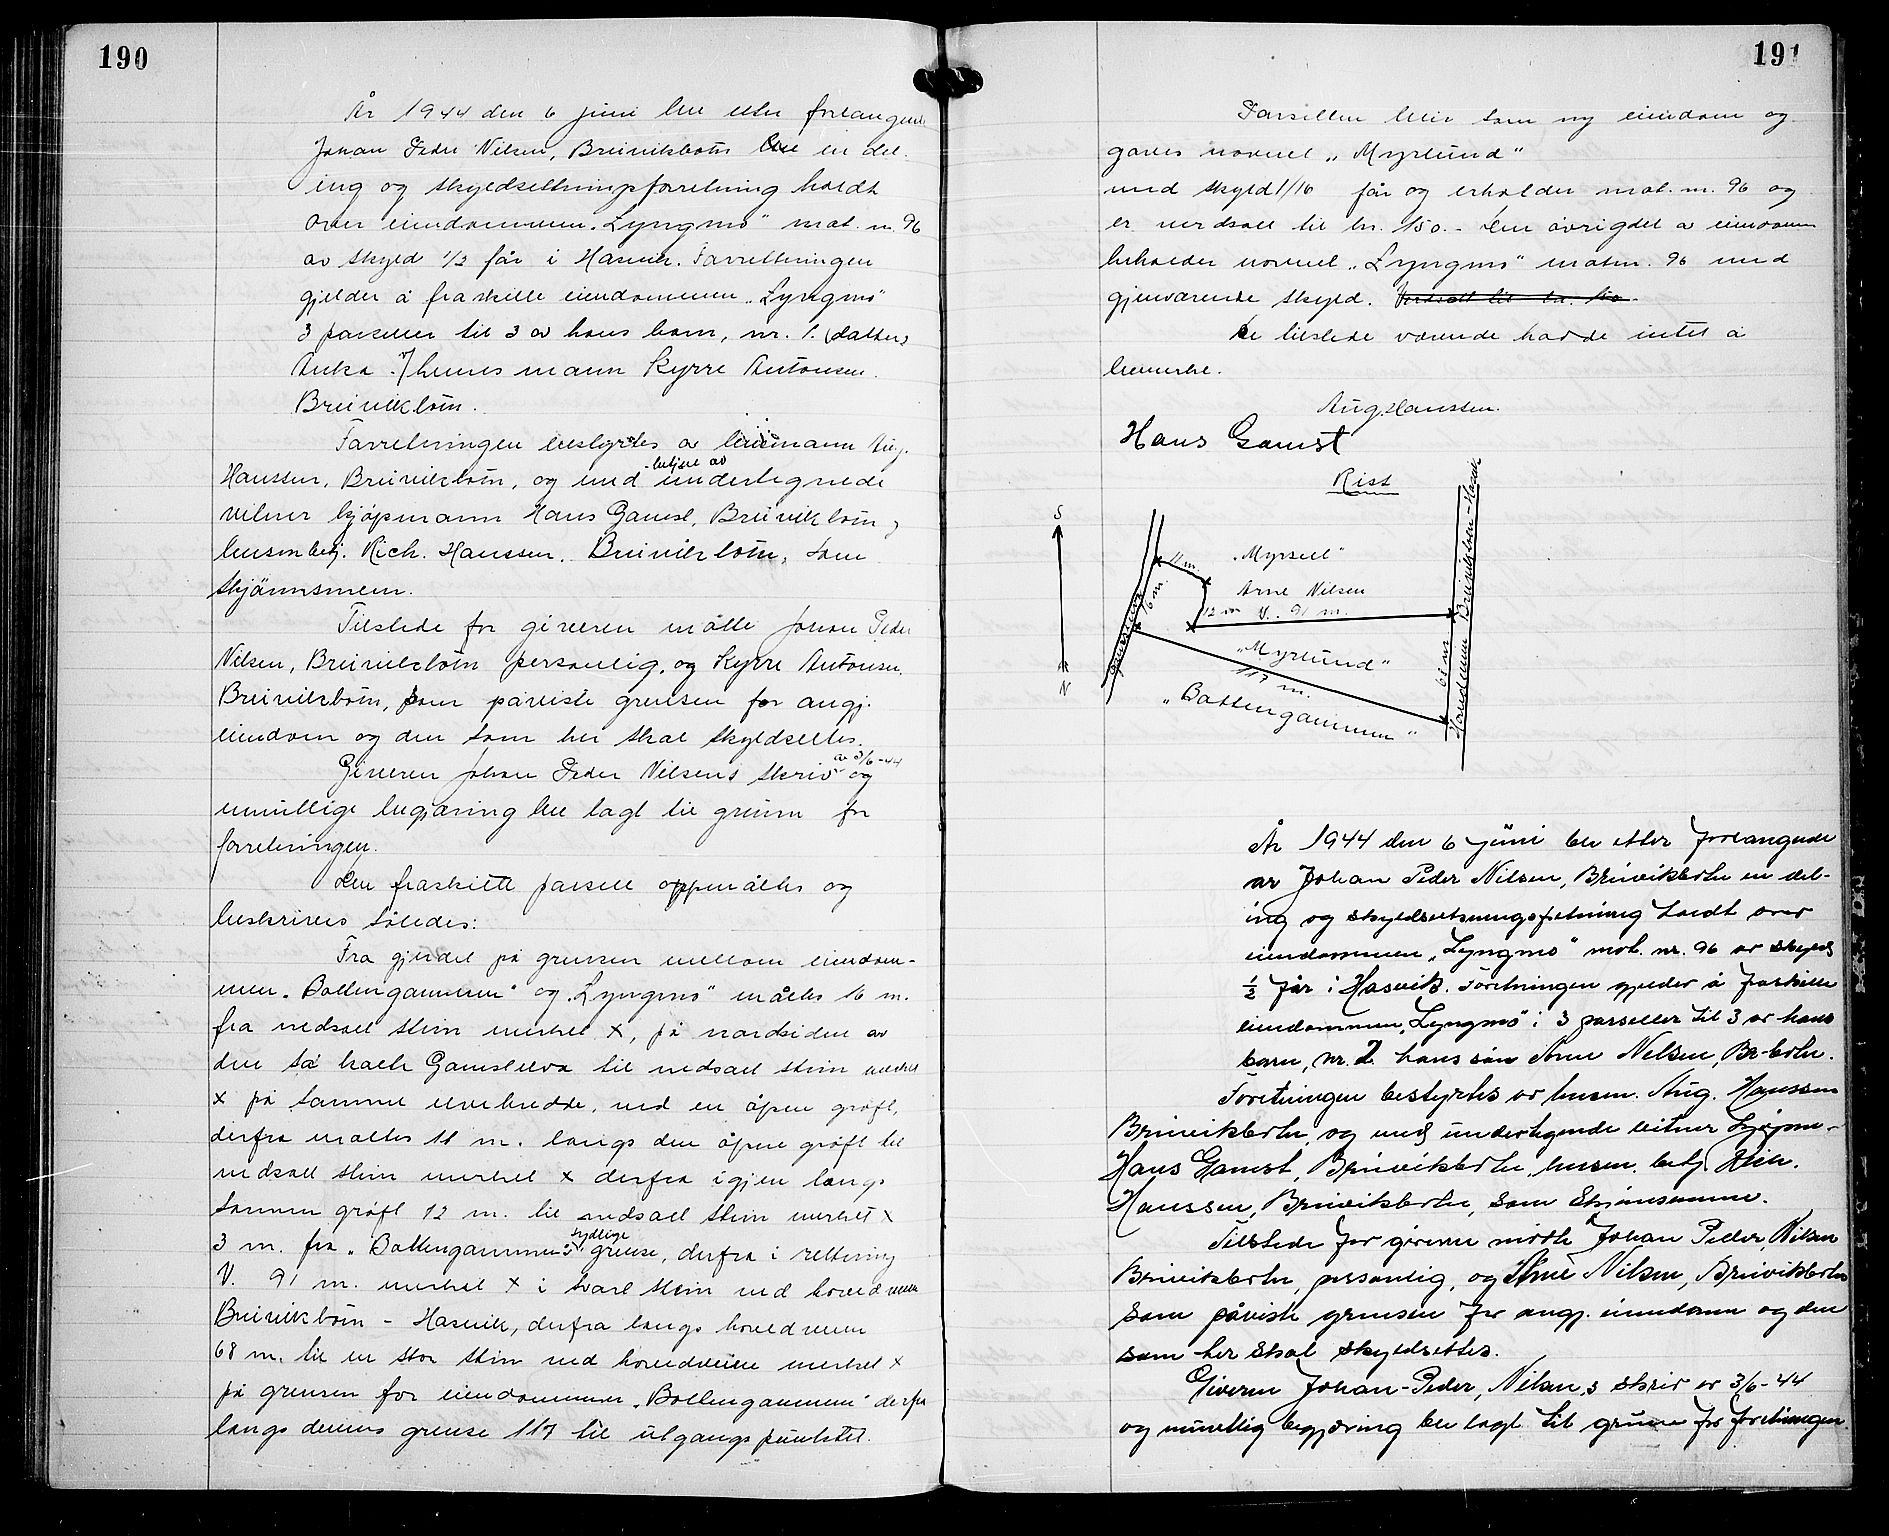 190
År 1944 den 6 juni ble etter forlangende
Johan Peder Nilsen, Breivikbotn ble en del-
ing og skyldsettningsforretning holdt
over eiendommen „Lyngmo" mat. nr. 96
av skyld 1/2 får i Hasvik. Forrettningen
gjelder å fraskille eiendommen „Lyngmo"
3 parseller til 3 av hans barn, nr. 1. (datter)
Anka hennes mann Kyrre Antonsen.
Breivikbotn.
Forretningen bestyrtes av lensmann Aug.
Hanssen, Breivikbotn, og med undertegnede
vitner kjøpmann Hans Gamst, Breivikbotn,
lensm betj. Rich. Hanssen. Breivikbotn, som
skjønnsmenn.
Tilstede for giveren møtte Johan Peder
Nilsen, Breivikbotn personlig, og Kyrre Antonsen.
Breivikbotn, som påviste grensen for angj.
eiendom og den som her skal skyldsettes.
Giveren Johan Peder Nilsens skriv av 3/6-44 og
muntlige begjæring ble lagt til grunn for
forretningen.
Den fraskilte parsell oppmåltes og
beskrives således:
Fra gjerdet på grensen mellom eiendom-
men „Bottengammen" og „Lyngmo" måltes 16 m.
fra nedsatt sten merket x, på nordsiden av
den så kalte Gamstelva til nedsatt sten merket
x på samme elvebredde, ved en åpen grøft,
derfra måltes 11 m. langs den åpne grøft til
nedsatt sten merket x derfra igjen langs
samme grøft 12 m. til nedsatt sten merket x
3 m. fra „Bottengammens" sydlige grense, derfra i rettning
V. 91 m. merket x i svart sten ved hovedveien
Breivikbotn - Hasvik, derfra langs hovedveien
68 m. til en stor sten ved hovedveien merket x
på grensen for eiendommen „Bottengammen" derfra
langs dennes grense 117 til utgangspunktet.
191
Parsellen blir som ny eiendom og
gaves navnet „Myrlund"
med skyld 1/16 får og erholder mat. nr. 96 og
er verdsatt til kr. 150.- Den øvrig del a eiendommen
beholder navnet „Lyngmo" matnr. 96 med
gjenværende skyld. Verdsatt til kr. 150.-
De tilstede værende hadde intet å
bemerke.
Aug. Hanssen.
Hans Gamst
Riss
S
N
11 m.
16 m.
„Myrsell"
Arne Nilsen
12 m V. 91 m.
„Myrlund"
117 m.
„Bottengammen"
68 m
Hovedveien Breivikbotn-Hasvik
År 1944 den 6 juni ble etter forlangende
av Johan Peder Nilsen, Breivikbotn en del-
ing og skyldsetningsforetning holdt over
eiendommen „Lyngmo" mat. nr. 96 av skyld
½ får i Hasvik. Foretningen gjelder å fraskille
eiendommen „Lyngmo" i 3 parseller til 3 av hans
barn, nr. 2. hans søn Arne Nilsen, Br-botn.
Foretningen bestyrtes av lensm. Aug. Hanssen
Breivikbotn, og med undertegnede vitner kjøpm.
Hans Gamst, Breivikbotn, lensm. betj. Rich.
Hanssen, Breivikbotn, som skjønsmenn.
Tilstede for giveren møtte Johan Peder, Nilsen
Breivikbotn, personlig, og Arne Nilsen, Breivikbotn
som påviste grensen for angj. eiendom og den
som her skal skyldsettes.
Giveren Johan-Peder, Nilsen,s skriv av 3/6-44
og muntlig begjæring ble lagt til grunn for foretningen